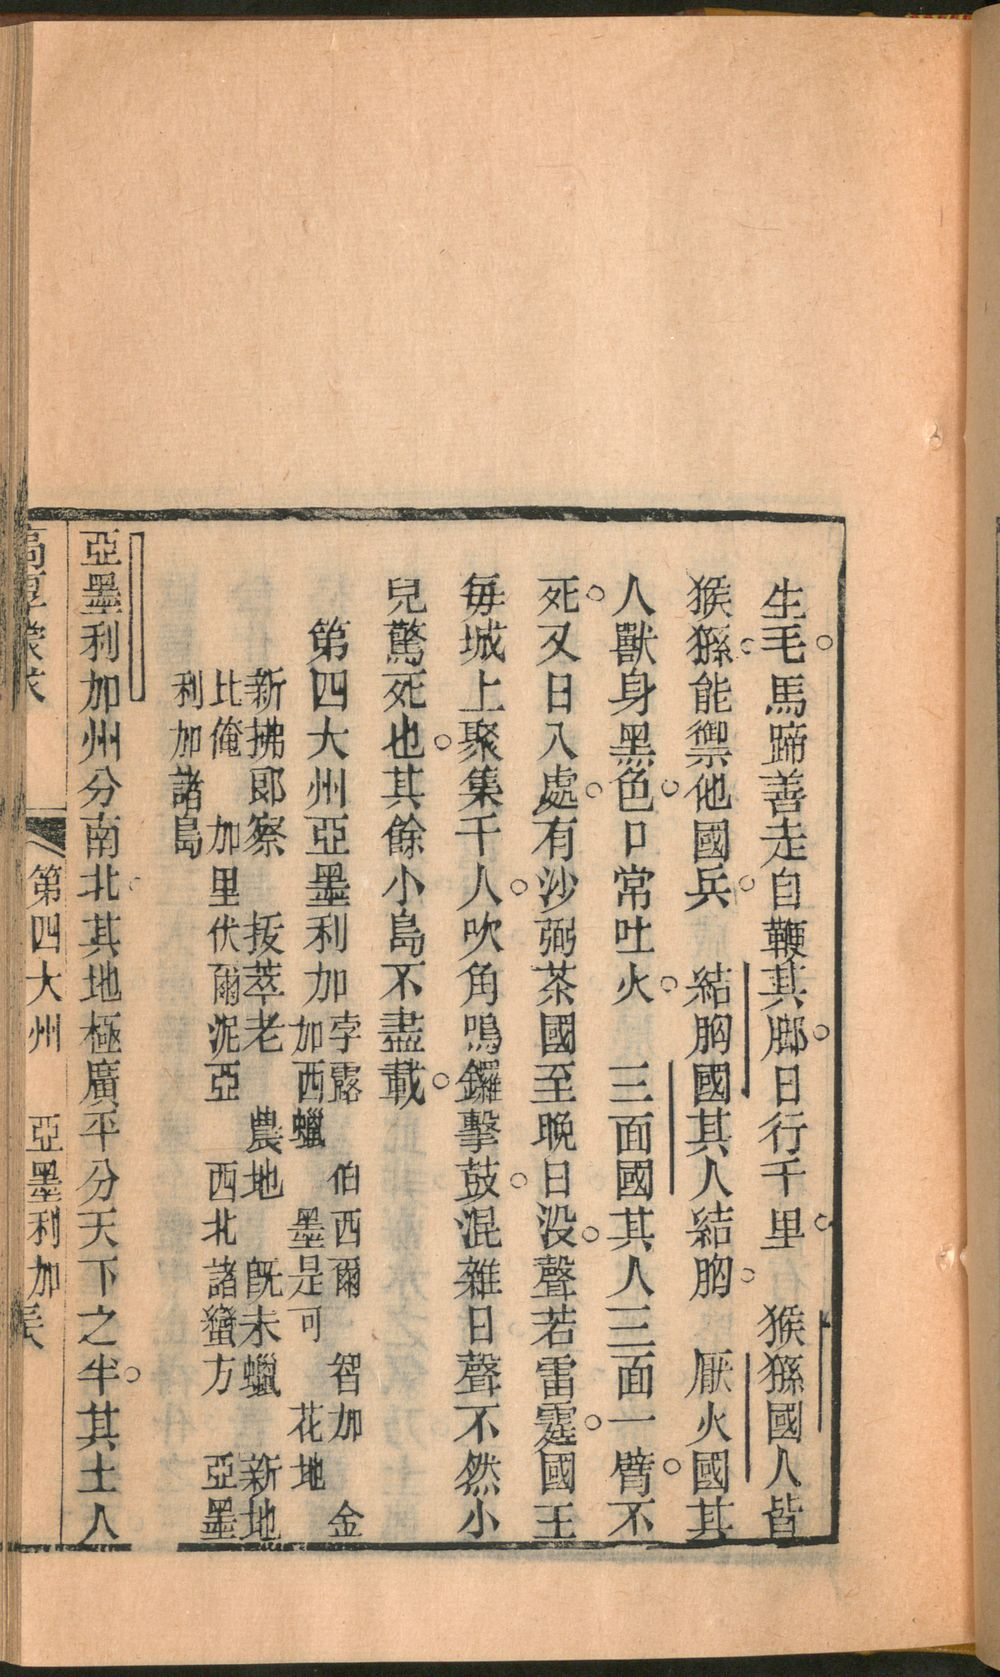 生毛馬蹄善走自鞭其脚日行千里　猴猻國人皆
猴猻能禦他國兵　結胸國其人結胸　厭火國其
人獸身黑色口常吐火　三面國其人三面一臂不
死又日入處有沙弼茶國至晚日没聲若雷霆國王
每城上聚集千人吹角鳴鑼擊鼓混雜日聲不然小
兒驚死也其餘小島不盡載
第四大州亞墨利加
孛露　伯西爾　智加　金
加西蠟　墨是可　花地
新拂郎察　拔萃老　農地　旣未蠟　新地
比俺　加里伏爾泥亞　西北諸蠻方　亞墨
利加諸島
亞墨利加州分南北其地極廣平分天下之半其土人
高厚蒙求　第四大州　亞墨利加